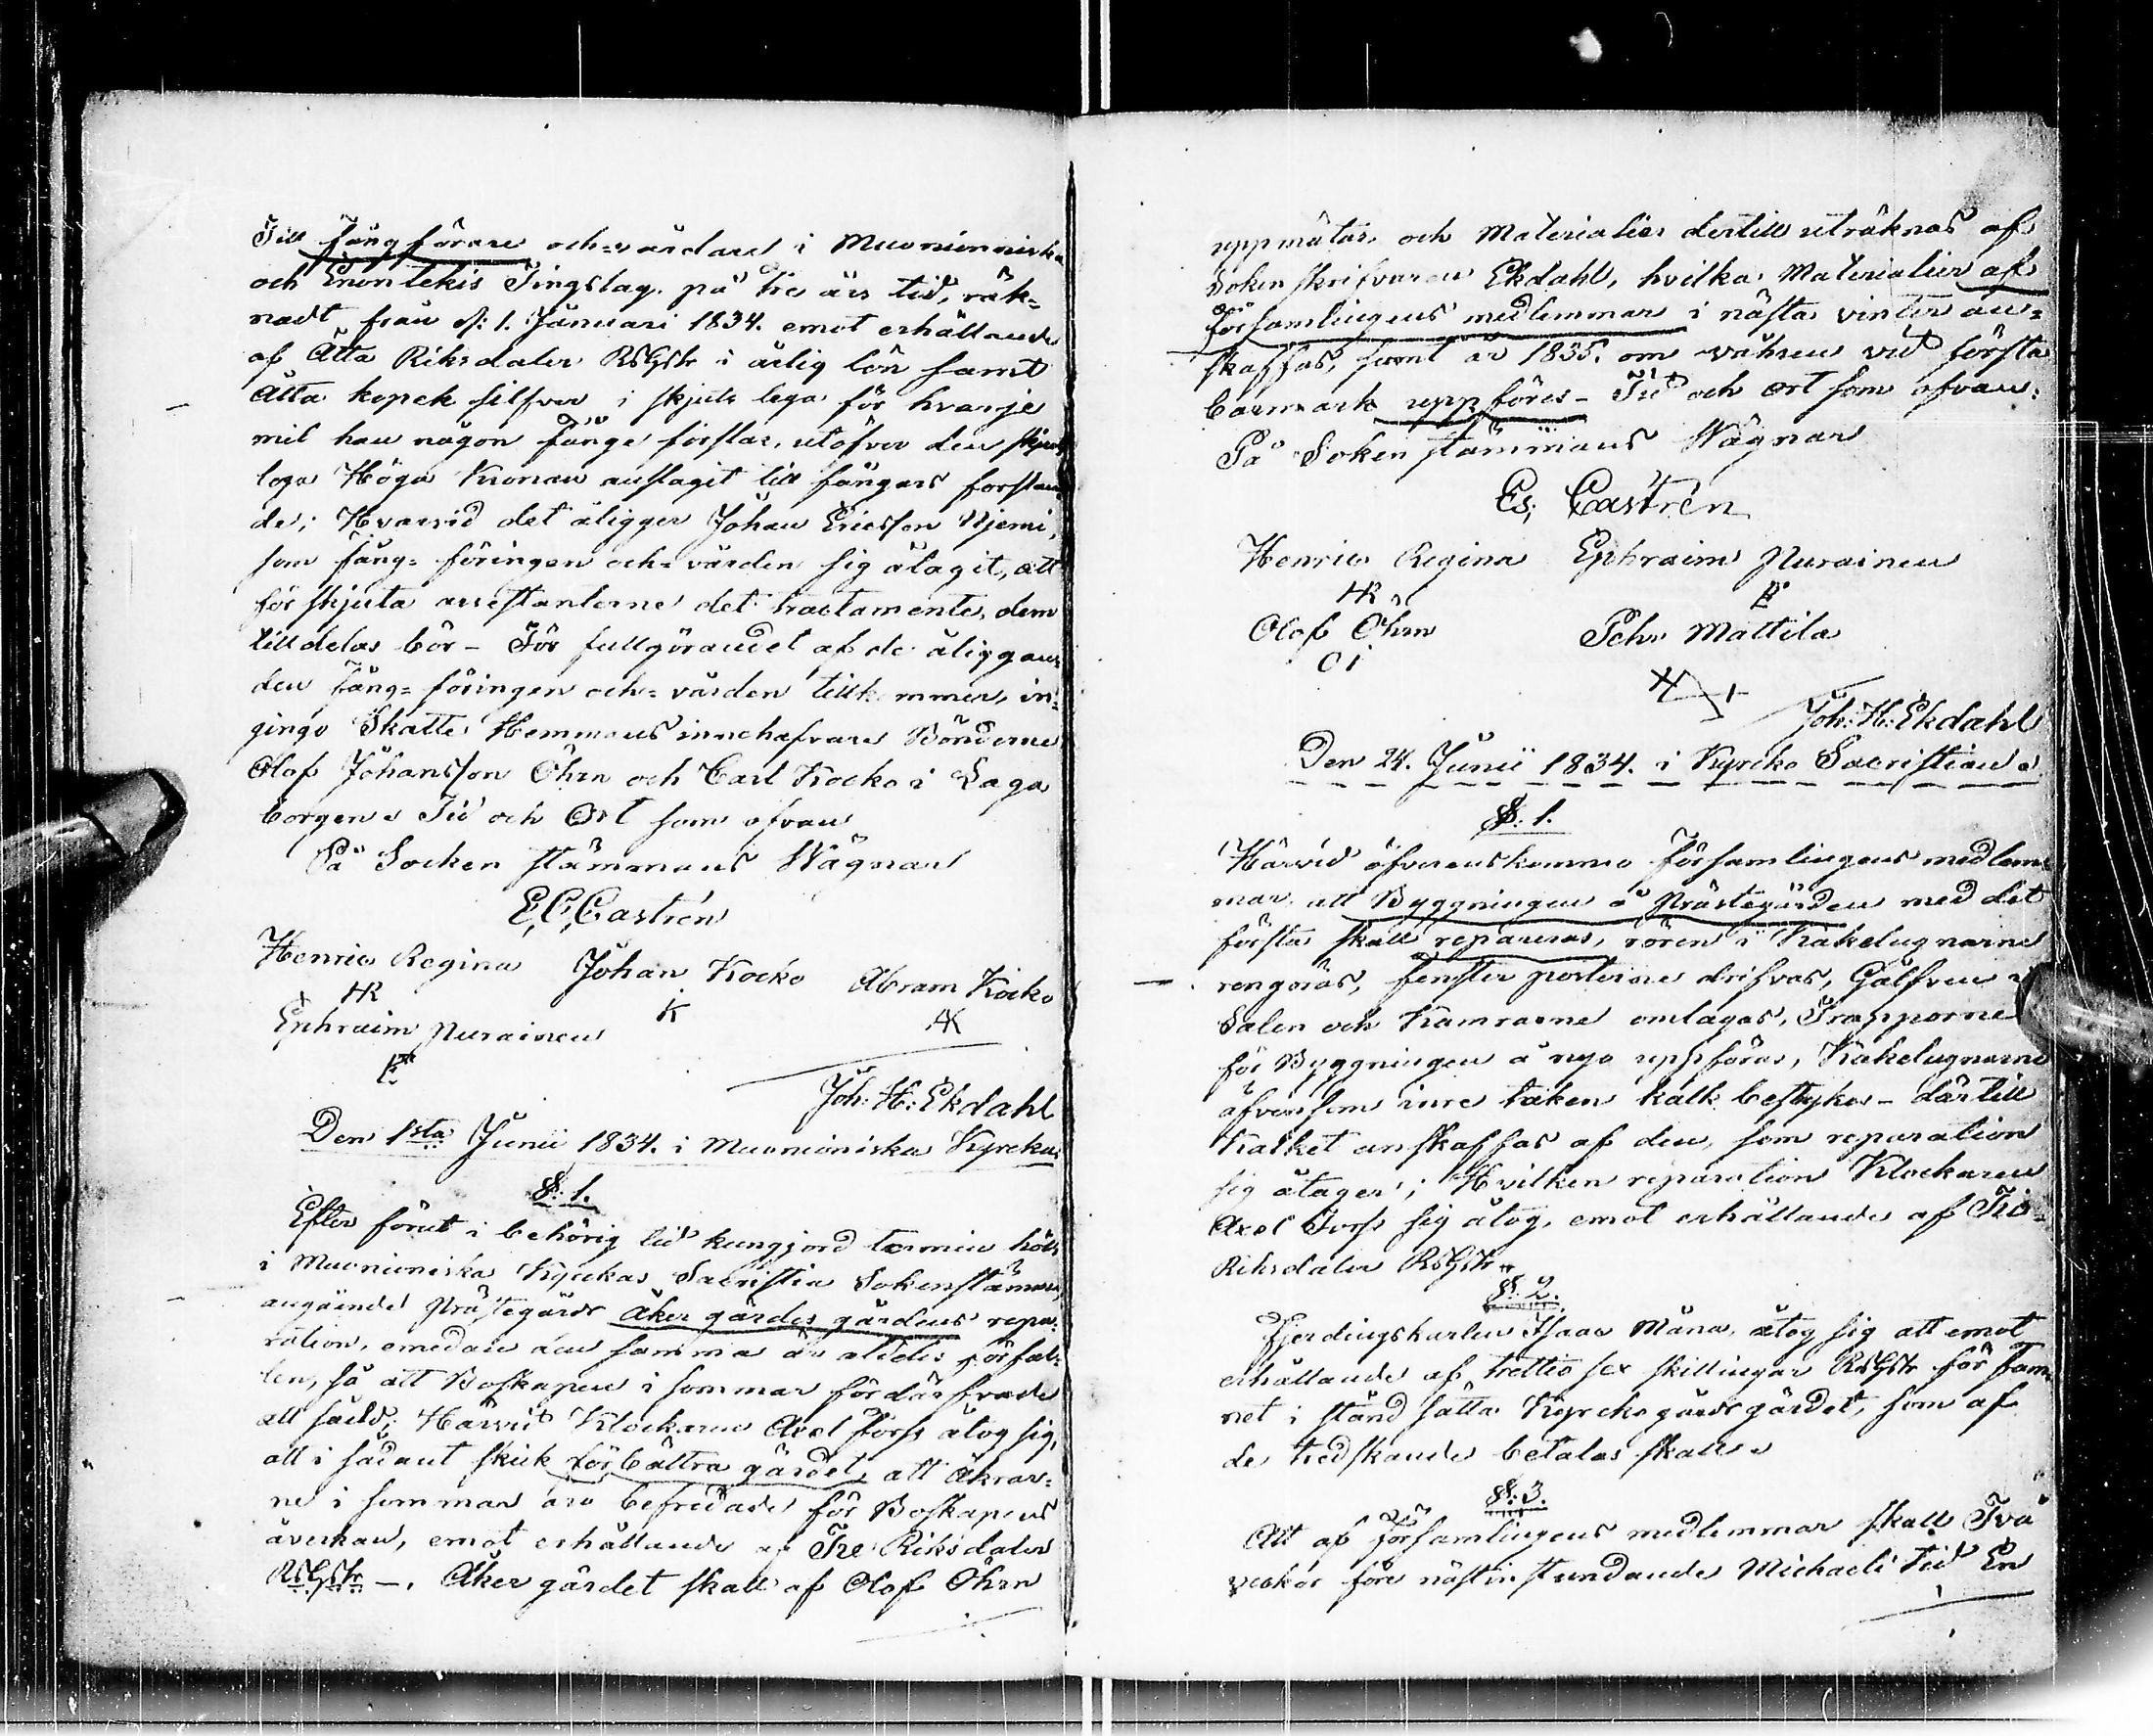 Till fångförare och=vårdare i Muonionniska
och Enontekis Tingslag. på tre års tid, räk=
nadt från d: 1. Januari 1834. emot erhållande
af Åtta Riksdaler RsGstr i årlig lön samt
Åtta kopek silfver i skjuts lega för hvarje
mil han någon fånge forslar, utöfver den skjuts
lega Höga Kronan anslagit till fångars forslan=
de; Hvarvid det åligger Johan Ericsson Njemi,
som fång=föringen och=vården sig åtagit, att
förskjuta arrestanterne det tractamente, dem
tilldelas bör – För fullgörandet af de åliggan=
den fång=föringen och=vården tillkommer, in=
gingo Skatte Hemmans innehafvare Bönderne
Olof Johansson Öhrn och Carl Kocko i Laga
borgen. Tid och Ort som ofvan
På Socken stämmans Wägnar
E, C, Castrén
Henric Regina Johan Kocko Abram Kocko
HR K AK
Ephraim Purainen
EP
Joh: H: Ekdahl
Den 1sta Junii 1834. i Muonioniska Kyrcka
§. 1.
Efter förut i behörig tid kungjord termin hölts
i Muonioniska Kyrckas Sacristia Sokenstämma,
angående Prästegårds åker gärdes gårdens repa=
ration, emedan den samma är aldeles förfal=
len, så att Boskapen i sommar fördärfvade
all säd; Härvid Klockaren Axel Forss åtog sig,
att i sådant skick förbättra gärdet, att Åkrar=
ne i sommar äro befredade för Boskapens
åverkan, emot erhållande af Tre Riksdaler
RsGstr –. Åker gärdet skall af Olof Öhrn
uppmätas och Materialier dertill uträknas af
Sokenskrifvaren Ekdahl, hvilka Materialier af
församlingens medlemmar i nästa vinter an=
skaffas, samt år 1835. om våhren vid första
barmark uppföres – Tid och ort som ofvan:
På Soken stämmans Wägnar
Es; Castrén
Henric Regina Ephraim Purainen
HR EP
Olof Öhrn Pehr Mattila
Oi
Joh: H: Ekdahl
Den 24. Junii 1834. i Kyrcko Sacristian
§. 1.
Härvid öfverenskommo Församlingens medlem=
mar att Byggningen å Prästegården med det
första skall repareras, rören i Kakelugnarne
rengöras, fenster posterne drifvas, Gålfven i
Salen och Kamrarne omlagas, Trapporne
för Byggningen å nyo uppföras, Kakelugnarne
äfvensom inre taken kalk bestrykas – därtill
Kalket anskaffas af den, som reparation
sig åtager; Hvilken reparation Klockaren
Axel Forss sig åtog, emot erhållande af Tio
Riksdaler RsGstr
§. 2.
Fjerdingskarlen Isaac Måna, åtog sig att emot
erhållande af trettio sex skillingar RsGstr för fam=
net i stånd sätta Kyrcko gårds gärdet, som af
de tredskande betalas skall
§. 3.
Att af Församlingens medlemmar skall Två
veckor före nästinstundande Michaeli tid En